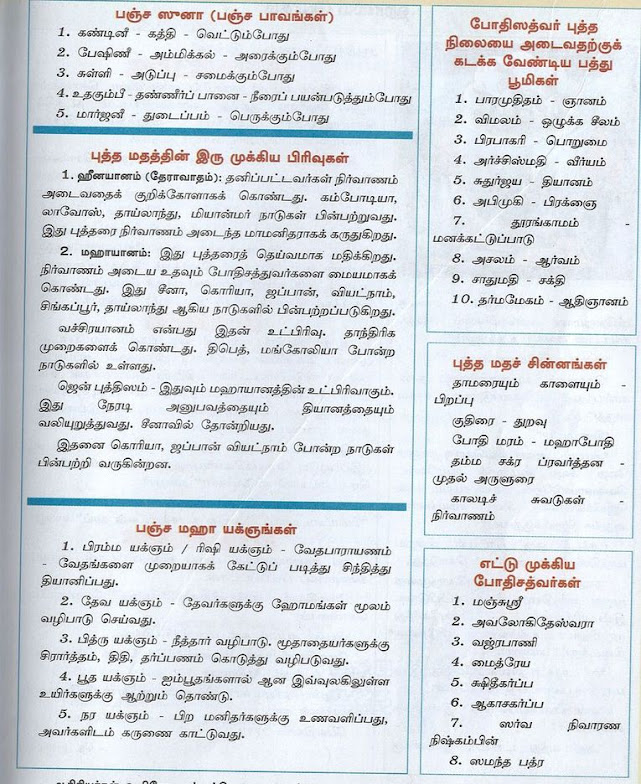 பஞ்ச ஸுனா (பஞ்ச பாவங்கள்)
1. கண்டினீ - கத்தி - வெட்டும்போது
2. பேஷிணீ - அம்மிக்கல் - அரைக்கும்போது
3. சுள்ளி - அடுப்பு - சமைக்கும்போது
4. உதகும்பீ - தண்ணீர்ப் பானை - நீரைப் பயன்படுத்தும்போது
5. மார்ஜனீ - துடைப்பம் - பெருக்கும்போது
புத்த மதத்தின் இரு முக்கிய பிரிவுகள்
1. ஹீனயானம் (தேராவாதம்): தனிப்பட்டவர்கள் நிர்வாணம்
அடைவதைக் குறிக்கோளாகக் கொண்டது. கம்போடியா,
லாவோஸ், தாய்லாந்து, மியான்மர் நாடுகள் பின்பற்றுவது.
இது புத்தரை நிர்வாணம் அடைந்த மாமனிதராகக் கருதுகிறது.
2. மஹாயானம்: இது புத்தரைத் தெய்வமாக மதிக்கிறது.
நிர்வாணம் அடைய உதவும் போதிசத்துவர்களை மையமாகக்
கொண்டது. இது சீனா, கொரியா, ஜப்பான், வியட்நாம்,
சிங்கப்பூர், தாய்லாந்து ஆகிய நாடுகளில் பின்பற்றப்படுகிறது.
வச்சிரயானம் என்பது இதன் உட்பிரிவு. தாந்திரிக
முறைகளைக் கொண்டது. திபெத், மங்கோலியா போன்ற
நாடுகளில் உள்ளது.
ஜென் புத்திஸம் - இதுவும் மஹாயானத்தின் உட்பிரிவாகும்.
இது நேரடி அனுபவத்தையும் தியானத்தையும்
வலியுறுத்துவது. சீனாவில் தோன்றியது.
இதனை கொரியா, ஜப்பான் வியட்நாம் போன்ற நாடுகள்
பின்பற்றி வருகின்றன.
பஞ்ச மஹா யக்ஞங்கள்
1. பிரம்ம யக்ஞம் / ரிஷி யக்ஞம் - வேதபாராயணம்
- வேதங்களை முறையாகக் கேட்டுப் படித்து சிந்தித்து
தியானிப்பது.
2. தேவ யக்ஞம் - தேவர்களுக்கு ஹோமங்கள் மூலம்
வழிபாடு செய்வது.
3. பித்ரு யக்ஞம் - நீத்தார் வழிபாடு. மூதாதையர்களுக்கு
சிரார்த்தம், திதி, தர்ப்பணம் கொடுத்து வழிபடுவது.
4. பூத யக்ஞம் - ஐம்பூதங்களால் ஆன இவ்வுலகிலுள்ள
உயிர்களுக்கு ஆற்றும் தொண்டு.
5. நர யக்ஞம் - பிற மனிதர்களுக்கு உணவளிப்பது,
அவர்களிடம் கருணை காட்டுவது.
போதிஸத்வர் புத்த
நிலையை அடைவதற்குக்
கடக்க வேண்டிய பத்து
பூமிகள்
1. பாரமுதிதம் - ஞானம்
2. விமலம் - ஒழுக்க சீலம்
3. பிரபாகரி - பொறுமை
4. அர்ச்சிஸ்மதி - வீர்யம்
5. சுதுர்ஜய - தியானம்
6. அபிமுகி - பிரக்ஞை
7. தூரங்காமம் -
மனக்கட்டுப்பாடு
8. அசலம் - ஆர்வம்
9. சாதுமதி - சக்தி
10. தர்மமேகம் - ஆதிஞானம்
புத்த மதச் சின்னங்கள்
தாமரையும் காளையும் -
பிறப்பு
குதிரை - துறவு
போதி மரம் - மஹாபோதி
தம்ம சக்ர ப்ரவர்த்தன -
முதல் அருளுரை
காலடிச் சுவடுகள் -
நிர்வாணம்
எட்டு முக்கிய
போதிசத்வர்கள்
1. மஞ்சுஸ்ரீ
2. அவலோகிதேஸ்வரா
3. வஜ்ரபாணி
4. மைத்ரேய
5. க்ஷிதிகர்ப்ப
6. ஆகாசகர்ப்ப
7 ஸர்வ நிவாரண
நிஷ்கம்பின்
8. ஸமந்த பத்ர